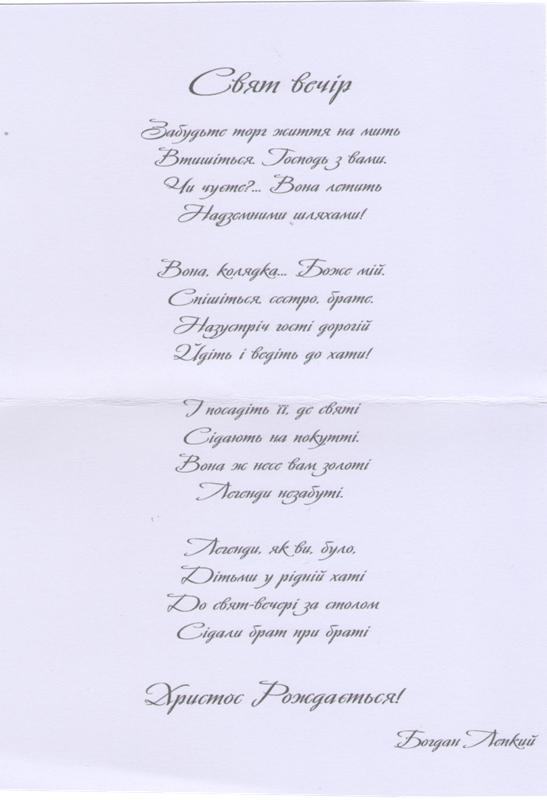 Свят вечір
Забудьте торг життя на мить
Втишіться. Господь з вами.
Чи чуєте?... Вона летить
Надземними шляхами!
Вона, колядка... Боже мій.
Спішіться, сестро, брате.
Назустріч гості дорогій
Йдіть і ведіть до хати!
І посадіть її, де святі
Сідають на покутті.
Вона ж несе вам золоті
Легенди незабуті.
Легенди, як ви, було,
Дітьми у рідній хаті
До свят-вечері за столом
Сідали брат при браті
Христос Рождається!
Богдан Лепкий